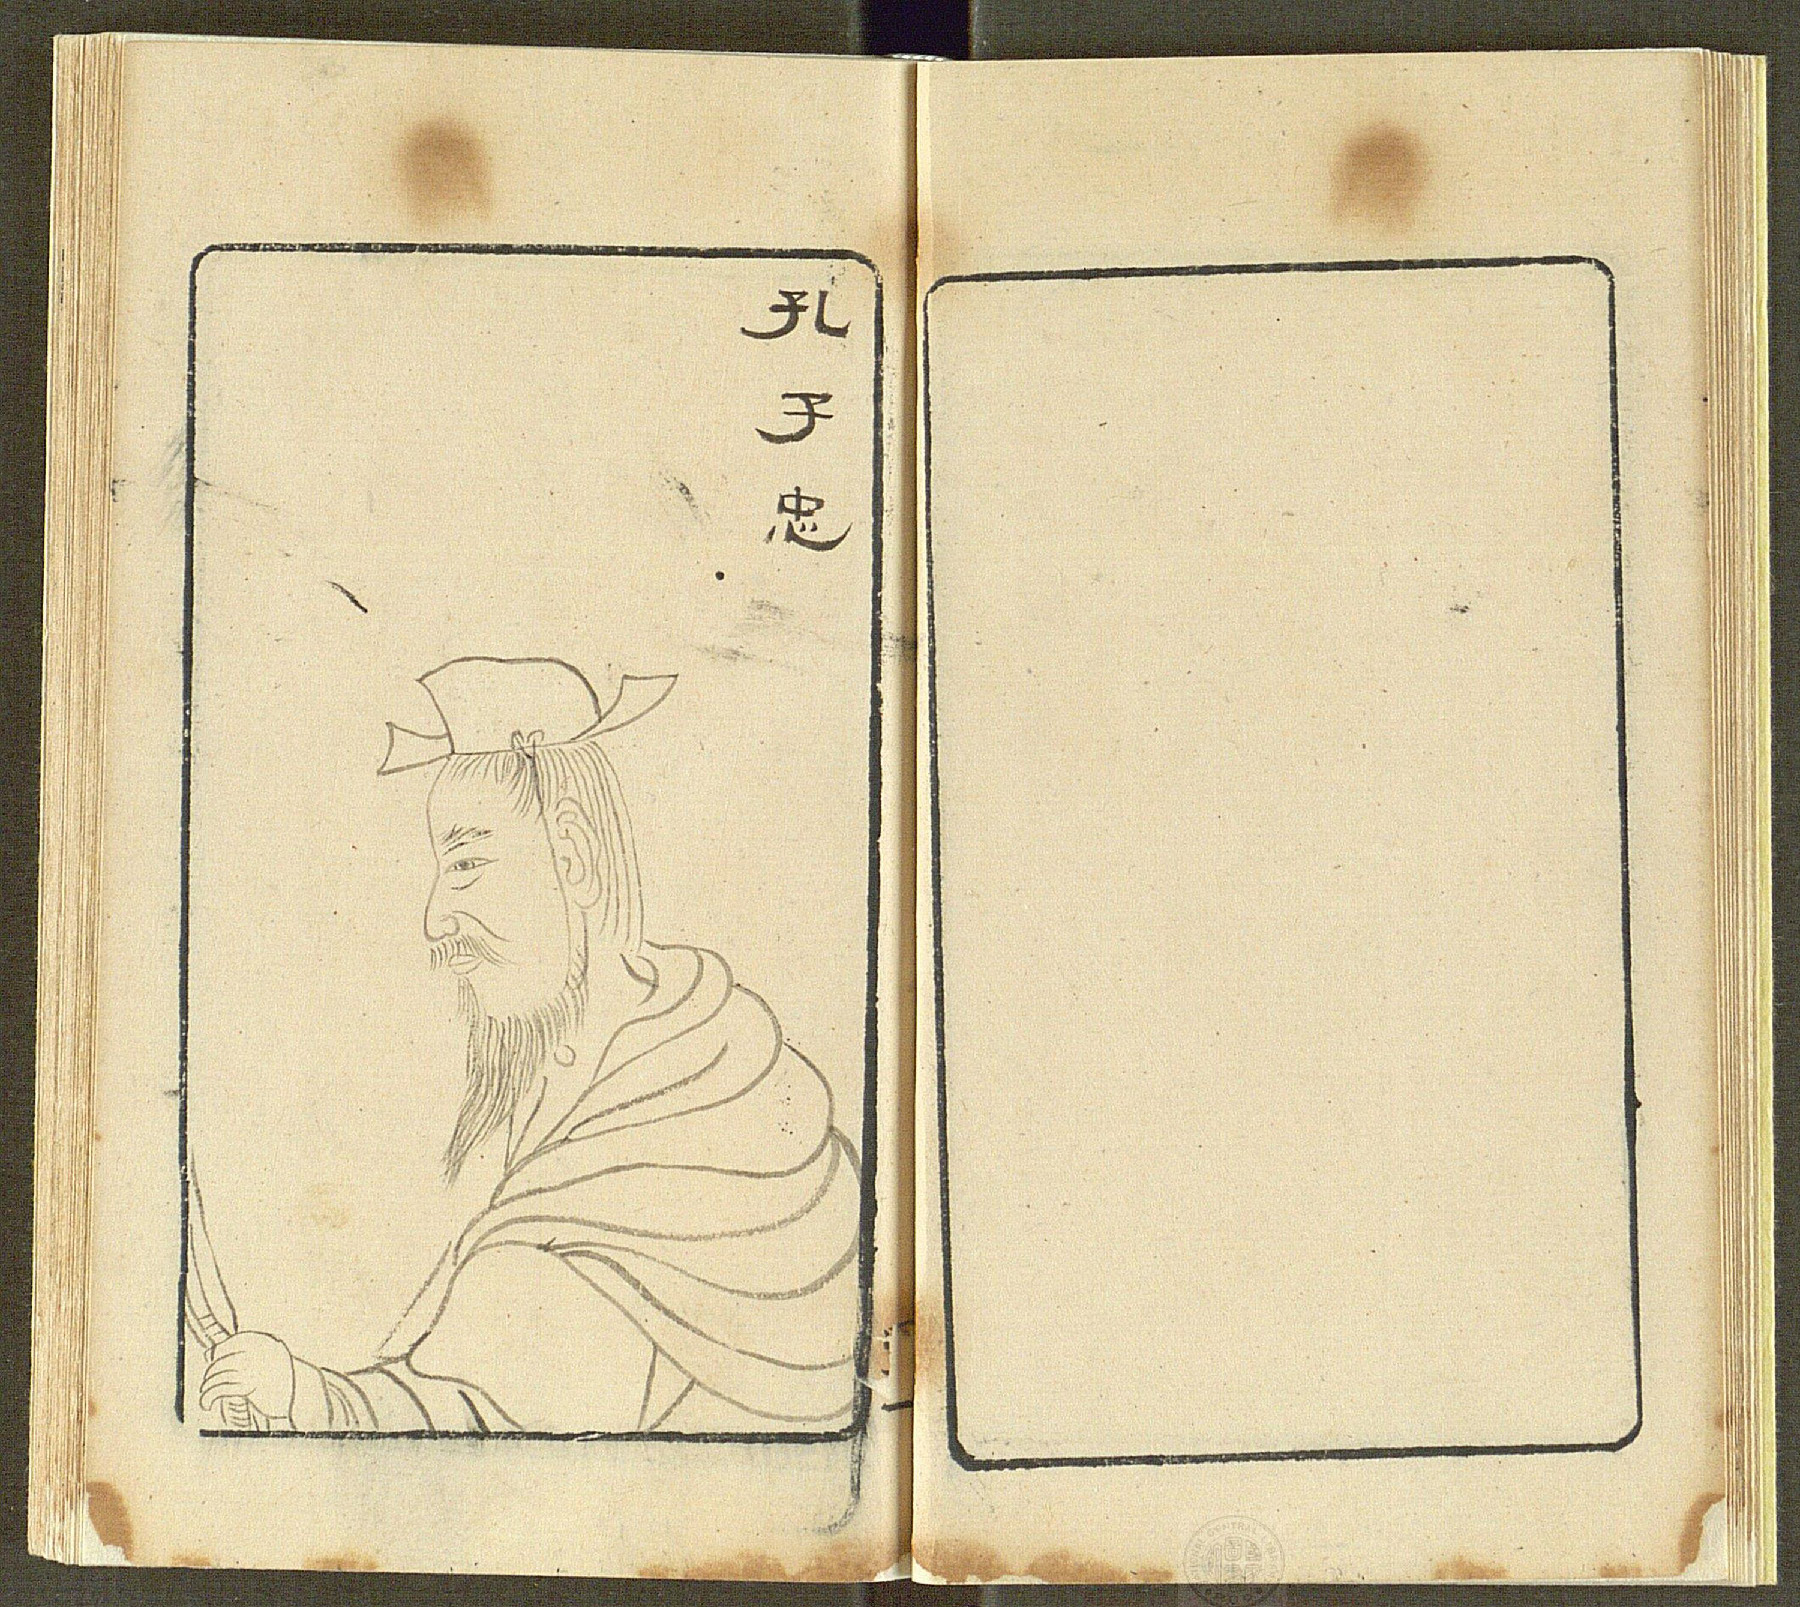 孔子忠